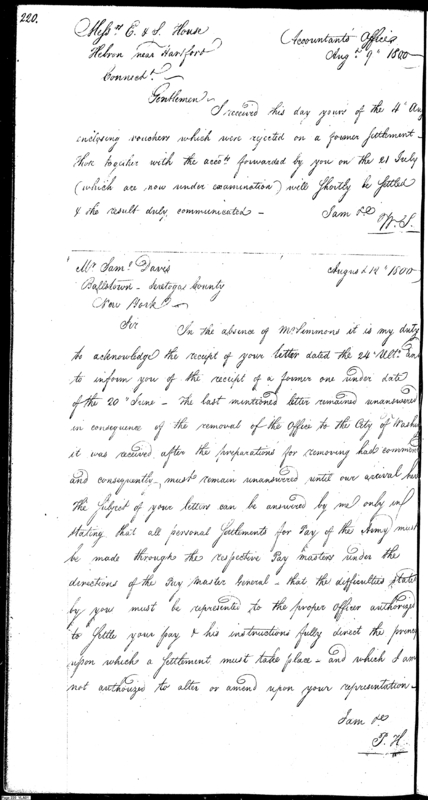 220.
Messrs E. & S. House
Hebron near Hartford
Connectt.
Accountants Office
Augt. 9th 1800
Gentlemen
I received this day yours of the 4th Aug
enclosing vouchers which were rejected on a former Settlement
those together with the accots. forwarded by you on the 21 July
(which are now under examination) will shortly be settled
& the result duly communicated -
I am &c
W. S.
Mr. Saml. Davis
Ballstown - Saratoga County
New York
August 14th 1800
Sir
In the absence of Mr Simmons it is my duty
to acknowledge the receipt of your letter dated the 24th Ulto. and
to inform you of the receipt of a former one under date
of the 20th June - The last mentioned letter remained unanswered
in consequence of the removal of the Office to the City of Washg
it was received after the preparations for removing had commen
and consequently must remain unanswered until our arrival her
The Subject of your letters can be answered by me only in
stating that all personal Settlements for Pay of the Army must
be made through the respective Pay masters under the
directions of the Pay Master General - that the difficulties state
by you must be represented to the proper Officer authorized
to Settle your pay & his instructions fully direct the princi
upon which a Settlement must take place - and which I am
not authorized to alter or amend upon your representation -
I am &c
P. H.